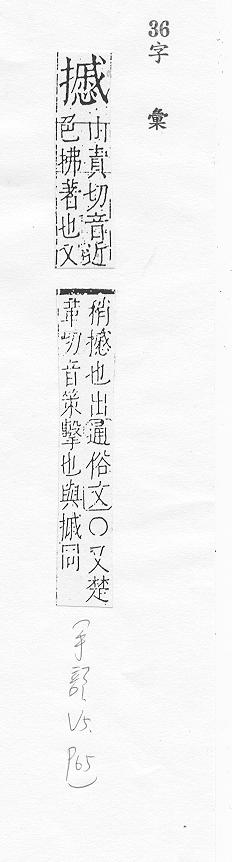 36字 彙
山責切音近
色拂著也又
稍也出通俗文○又楚
革切音策擊也與摵同
V5.
P65